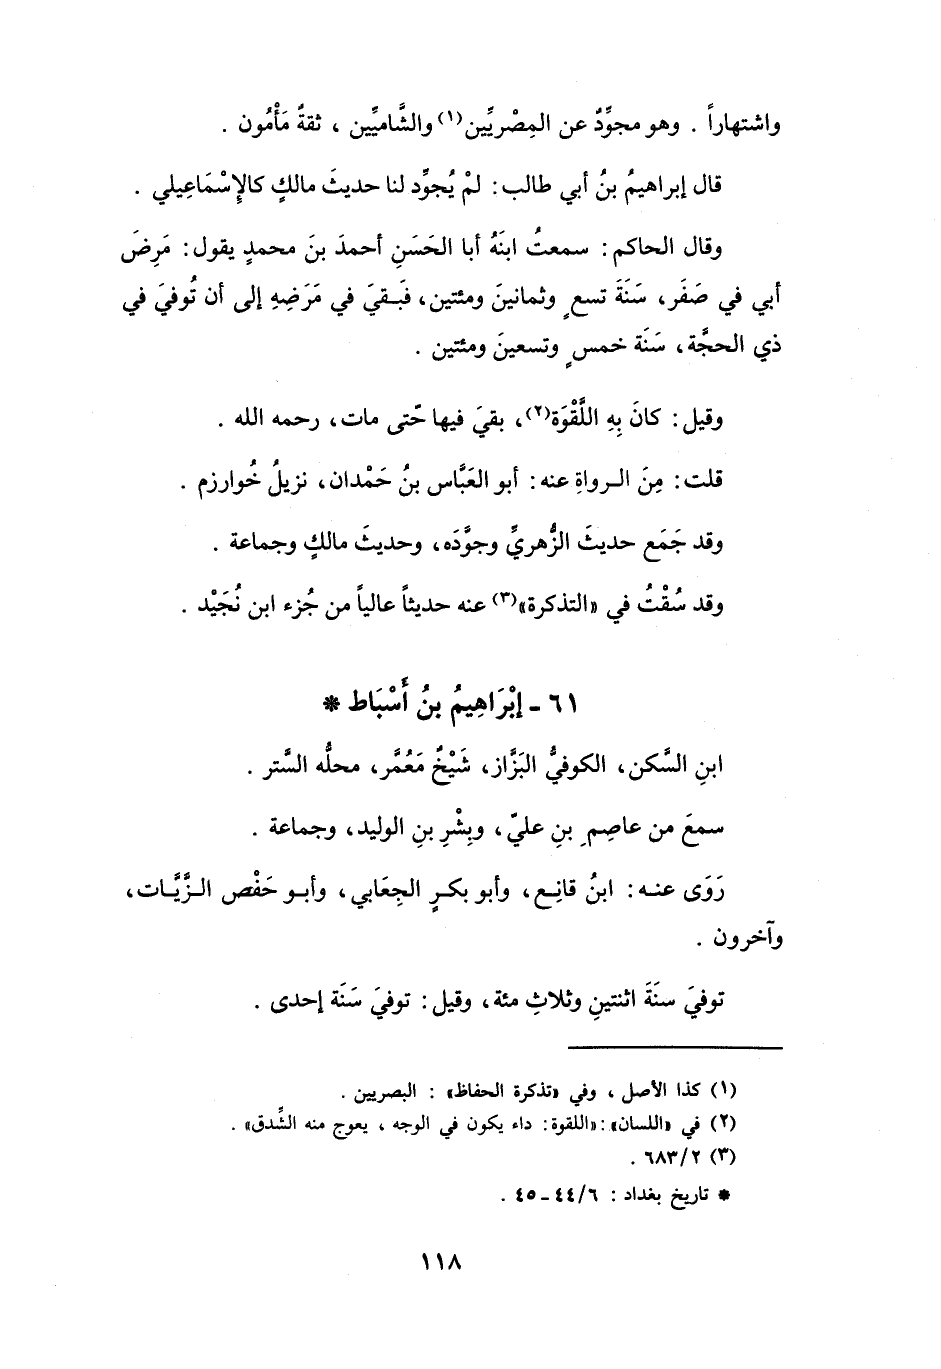 واشتهاراً . وهو مجوِّدٌ عن المِصْريِّين(١) والشَّاميِّين ، ثقةٌ مَأْمُون .
قال إبراهيمُ بنُ أبي طالب : لمْ يُجوِّد لنا حديثَ مالكٍ كالإِسْمَاعِيلي .
وقال الحاكم : سمعتُ ابنَهُ أبا الحَسَنِ أحمدَ بنَ محمدٍ يقول : مَرِضَ
أبي في صَفَر، سَنَةَ تسعٍ وثمانينَ ومئتين، فَبقيَ في مَرَضِهِ إلى أن تُوفيَ في
ذي الحجَّة، سَنَة خمسٍ وتسعينَ ومئتين .
وقيل : كانَ بِهِ اللَّقْوَة(٢)، بقيَ فيها حّتى مات، رحمه الله .
قلت : مِنَ الرواةِ عنه : أبو العَبَّاس بنُ حَمْدان، نزيلُ خُوارزم .
وقد جَمَع حديثَ الزُّهريِّ وجوَّدَه، وحديثَ مالكٍ وجماعة .
وقد سُقْتُ في «التذكرة»(٣) عنه حديثاً عالياً من جُزء ابن نُجَيْد .
٦١ - إبْرَاهِيمُ بنُ أَسْبَاط *
ابنِ السَّكن، الكوفيُّ البَزَّاز، شَيْخٌ مَعُمَّر، محلُّه السَّتر .
سمعَ من عاصِمِ بنِ عليّ، وبِشْرِ بنِ الوليد، وجماعة .
رَوَى عنه : ابنُ قانِع، وأبو بكرٍ الجِعَابي، وأبو حَفْص الزَّيَّات،
وآخرون .
توفيَ سنَةَ اثنتينِ وثلاثِ مئة، وقيل : توفيَ سَنَة إحدى .
(١) كذا الأصل ، وفي «تذكرة الحفاظ» : البصريين .
(٢) في «اللسان» : «اللقوة : داء يكون في الوجه ، يعوج منه الشِّدق» .
(٣) ٦٨٣/٢ .
* تاريخ بغداد : ٤٤/٦ - ٤٥ .
١١٨